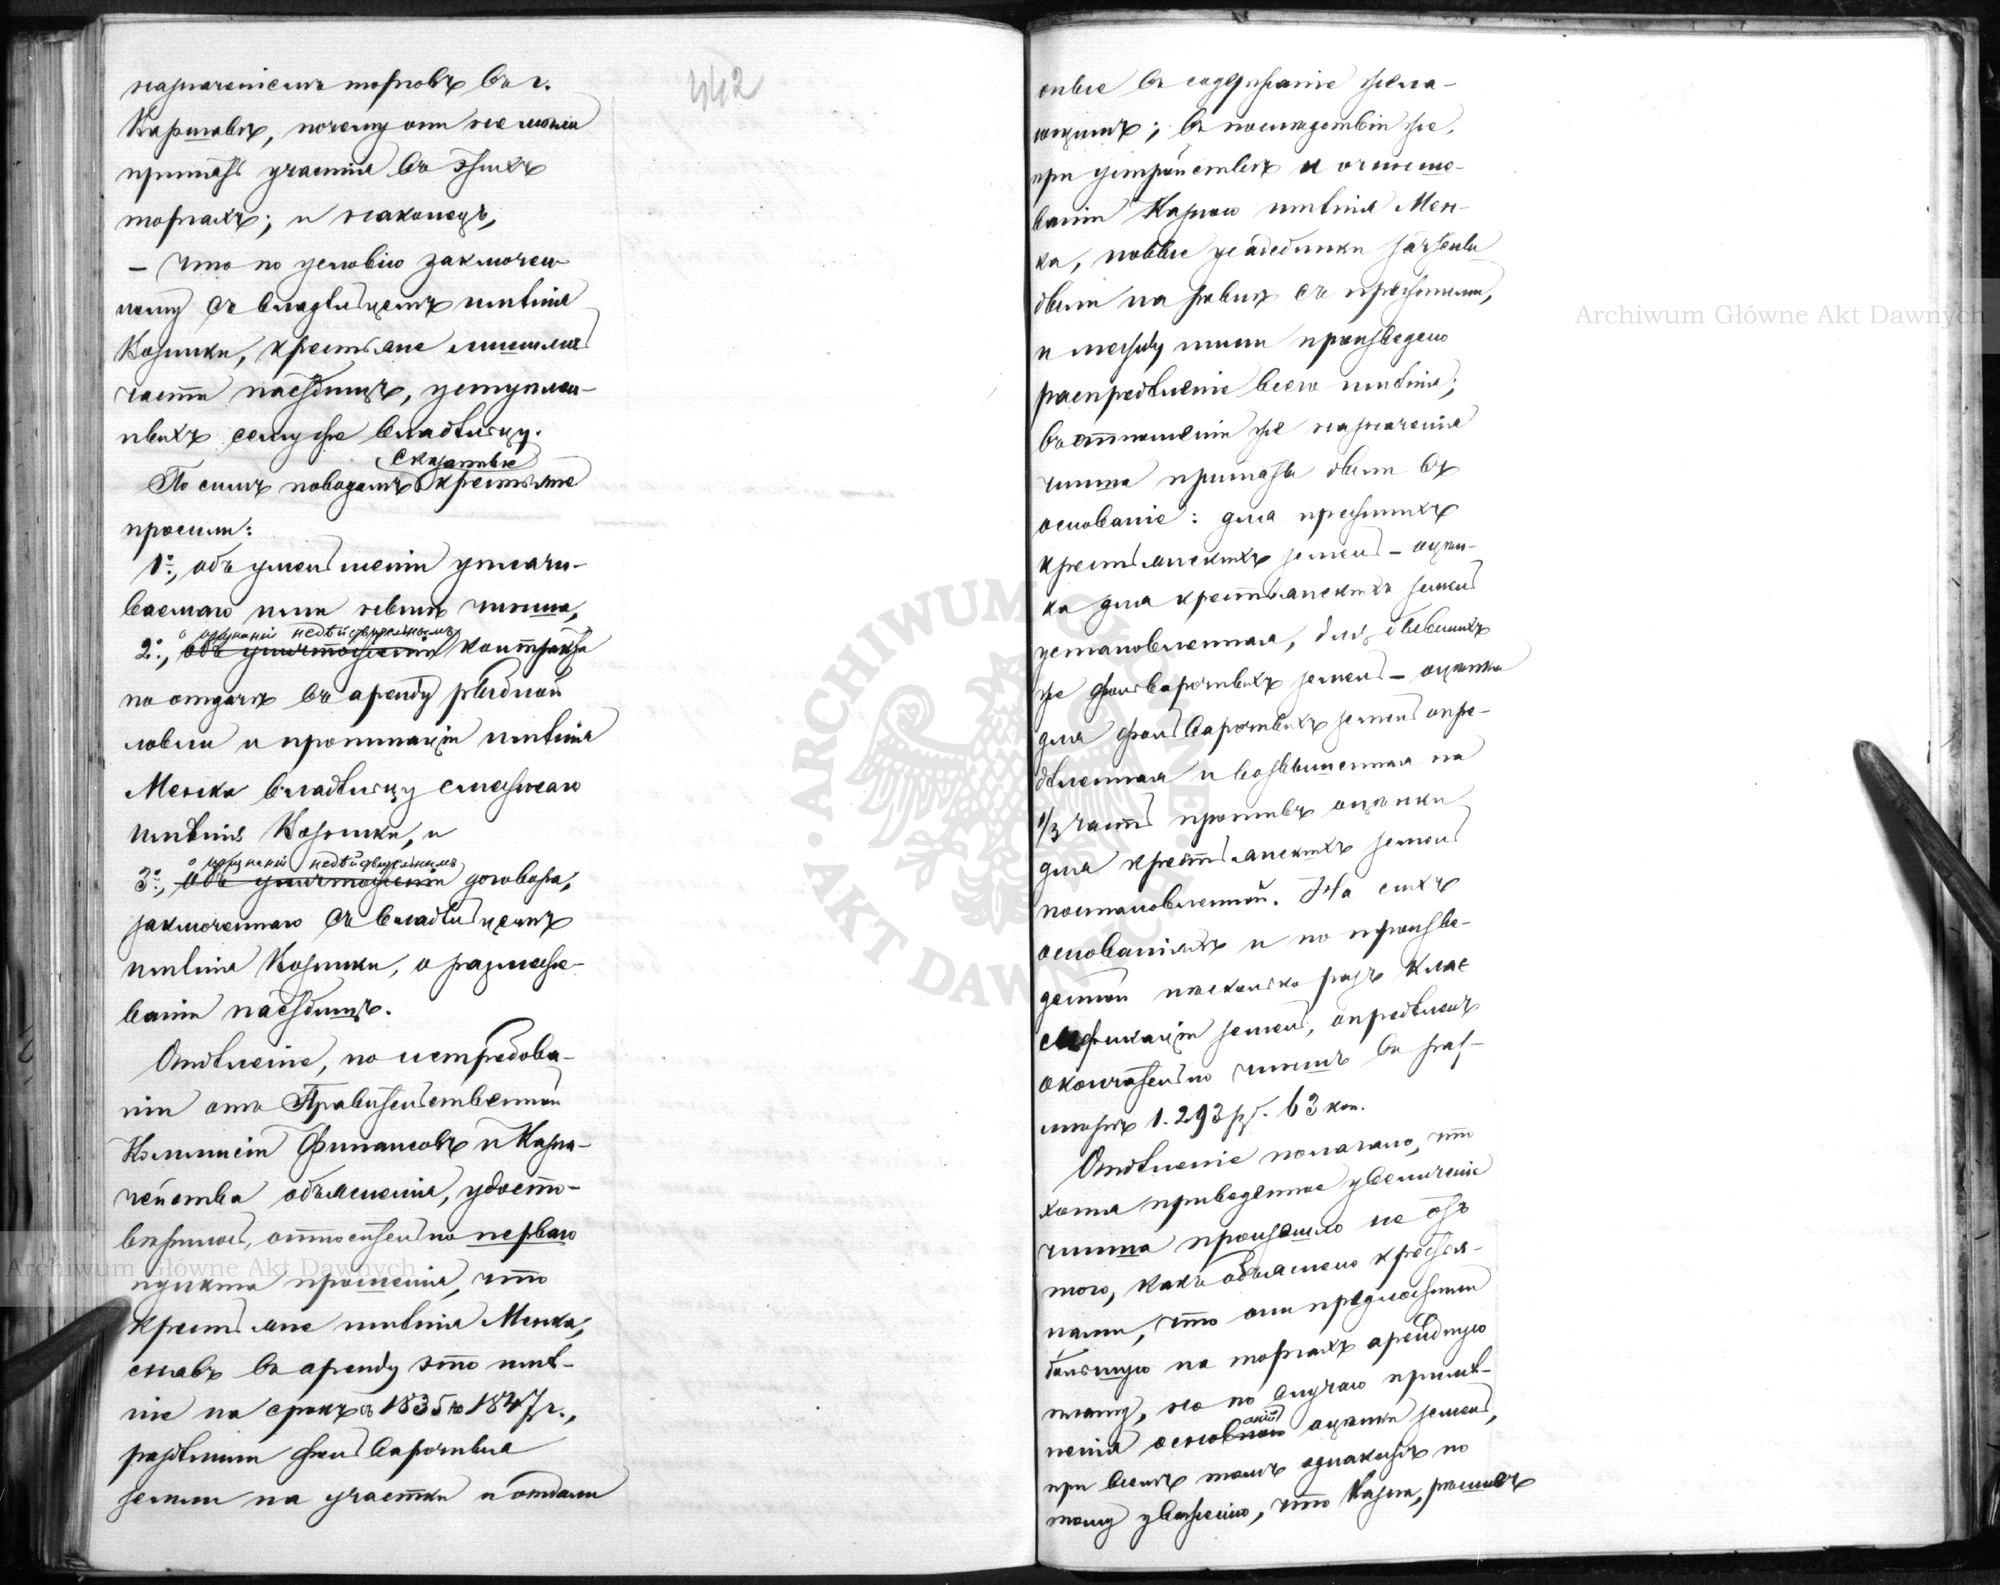 442
назначеніемъ торговъ въ г.
Варшавѣ, почему они не могли
принять участія въ этихъ
торгахъ; и наконецъ,
— что по условію заключен-
ному съ владѣльцемъ имѣнія
Козинки, крестьяне лишились
части пастбищъ, уступлен-
ныхъ сему же владѣльцу.
По симъ поводамъ сказанные крестьяне
просили:
1º, объ уменьшеніи уплачи-
ваемаго ими нынѣ чинша,
2º, о признаніи недѣйствительнымъ объ уничтоженіи контракта
по отдачѣ въ аренду рыбной
ловли и пропинаціи имѣнія
Менка владѣльцу смежнаго
имѣнія Козинки, и
3º, о признаніи недѣйствительнымъ объ уничтоженіи договора,
заключеннаго съ владѣльцемъ
имѣнія Козинки, о размеже-
ваніи пастбищъ.
Отдѣленіе, по истребова-
ніи отъ Правительственной
Коммисіи Финансовъ и Казна-
чейства объясненія, удосто-
вѣрилось, относительно перваго
пункта прошенія, что
крестьяне имѣнія Менка,
снявъ въ аренду это имѣ-
ніе на срокъ съ 1835 по 1847 г.,
раздѣлили фольварочныя
земли на участки и отдали
оные въ содержаніе жела-
ющимъ; въ послѣдствіи же,
при устройствѣ и очинше-
ваніи Казною имѣнія Мен-
ка, новые усадебники зачтены
были на равнѣ съ прежними,
и между ними произведено
распредѣленіе всего имѣнія;
въ отношеніи же назначенія
чинша приняты были въ
основаніе: для прежнихъ
крестьянскихъ земель — оцѣн-
ка для крестьянскихъ земель
установленная, для бывшихъ
же фольварочныхъ земель — оцѣнка
для фольварочныхъ земель опре-
дѣленная и возвышенная на
1/3 часть противъ оцѣнки
для крестьянскихъ земель
постановленной. На сихъ
основаніяхъ и по произве-
денной нѣсколько разъ клас-
сификаціи земель, опредѣленъ
окончательно чиншъ въ раз-
мѣрѣ 1.293 руб. 63 коп.
Отдѣленіе полагало, что
хотя приведенное увеличеніе
чинша произошло не отъ
того, какъ объяснено крестья-
нами, что они предложили
большую на торгахъ арендную
плату, но по случаю примѣ-
ненія основаній оцѣнки земель,
при всемъ томъ однакожъ по
тому уваженію, что Казна, рѣшивъ
Archiwum Główne Akt Dawnych
Archiwum Główne Akt Dawnych
ARCHIWUM GŁÓWNE · AKT DAWNYCH ·